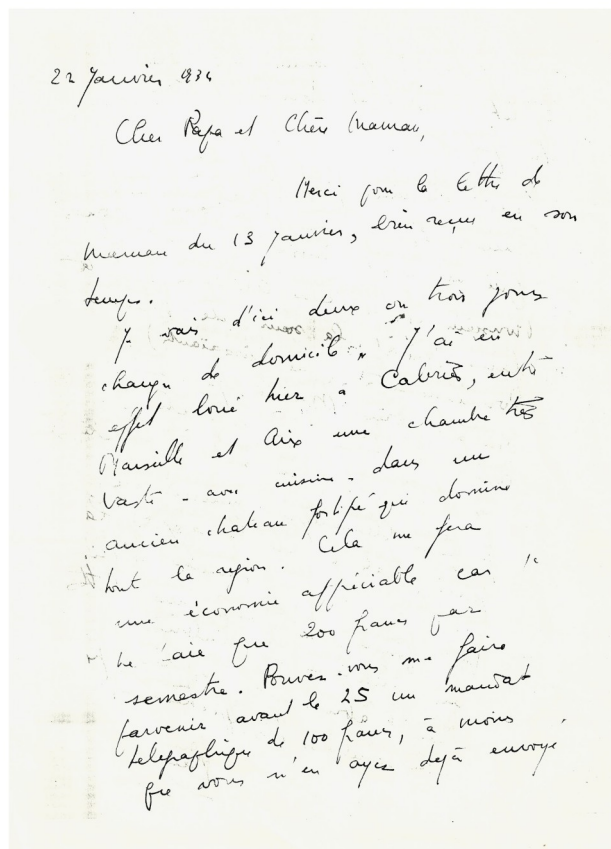 22 Janvier 934
Cher Papa et Chère Maman,
Merci pour la lettre de
Maman du 13 Janvier, bien reçue en son
temps.
Je vais d'ici deux ou trois jours
changer de domicile. J'ai en
effet loué hier à Cabriès, entre
Marseille et Aix une chambre très
vaste - avec cuisine - dans un
ancien chateau fortifié qui domine
tout la région. Cela me fera
une économie appréciable car je
ne paie que 200 francs par
semestre. Pouvez-vous me faire
parvenir avant le 25 un mandat
télégraphique de 100 francs, à moins
que vous n'en ayez déjà envoyé